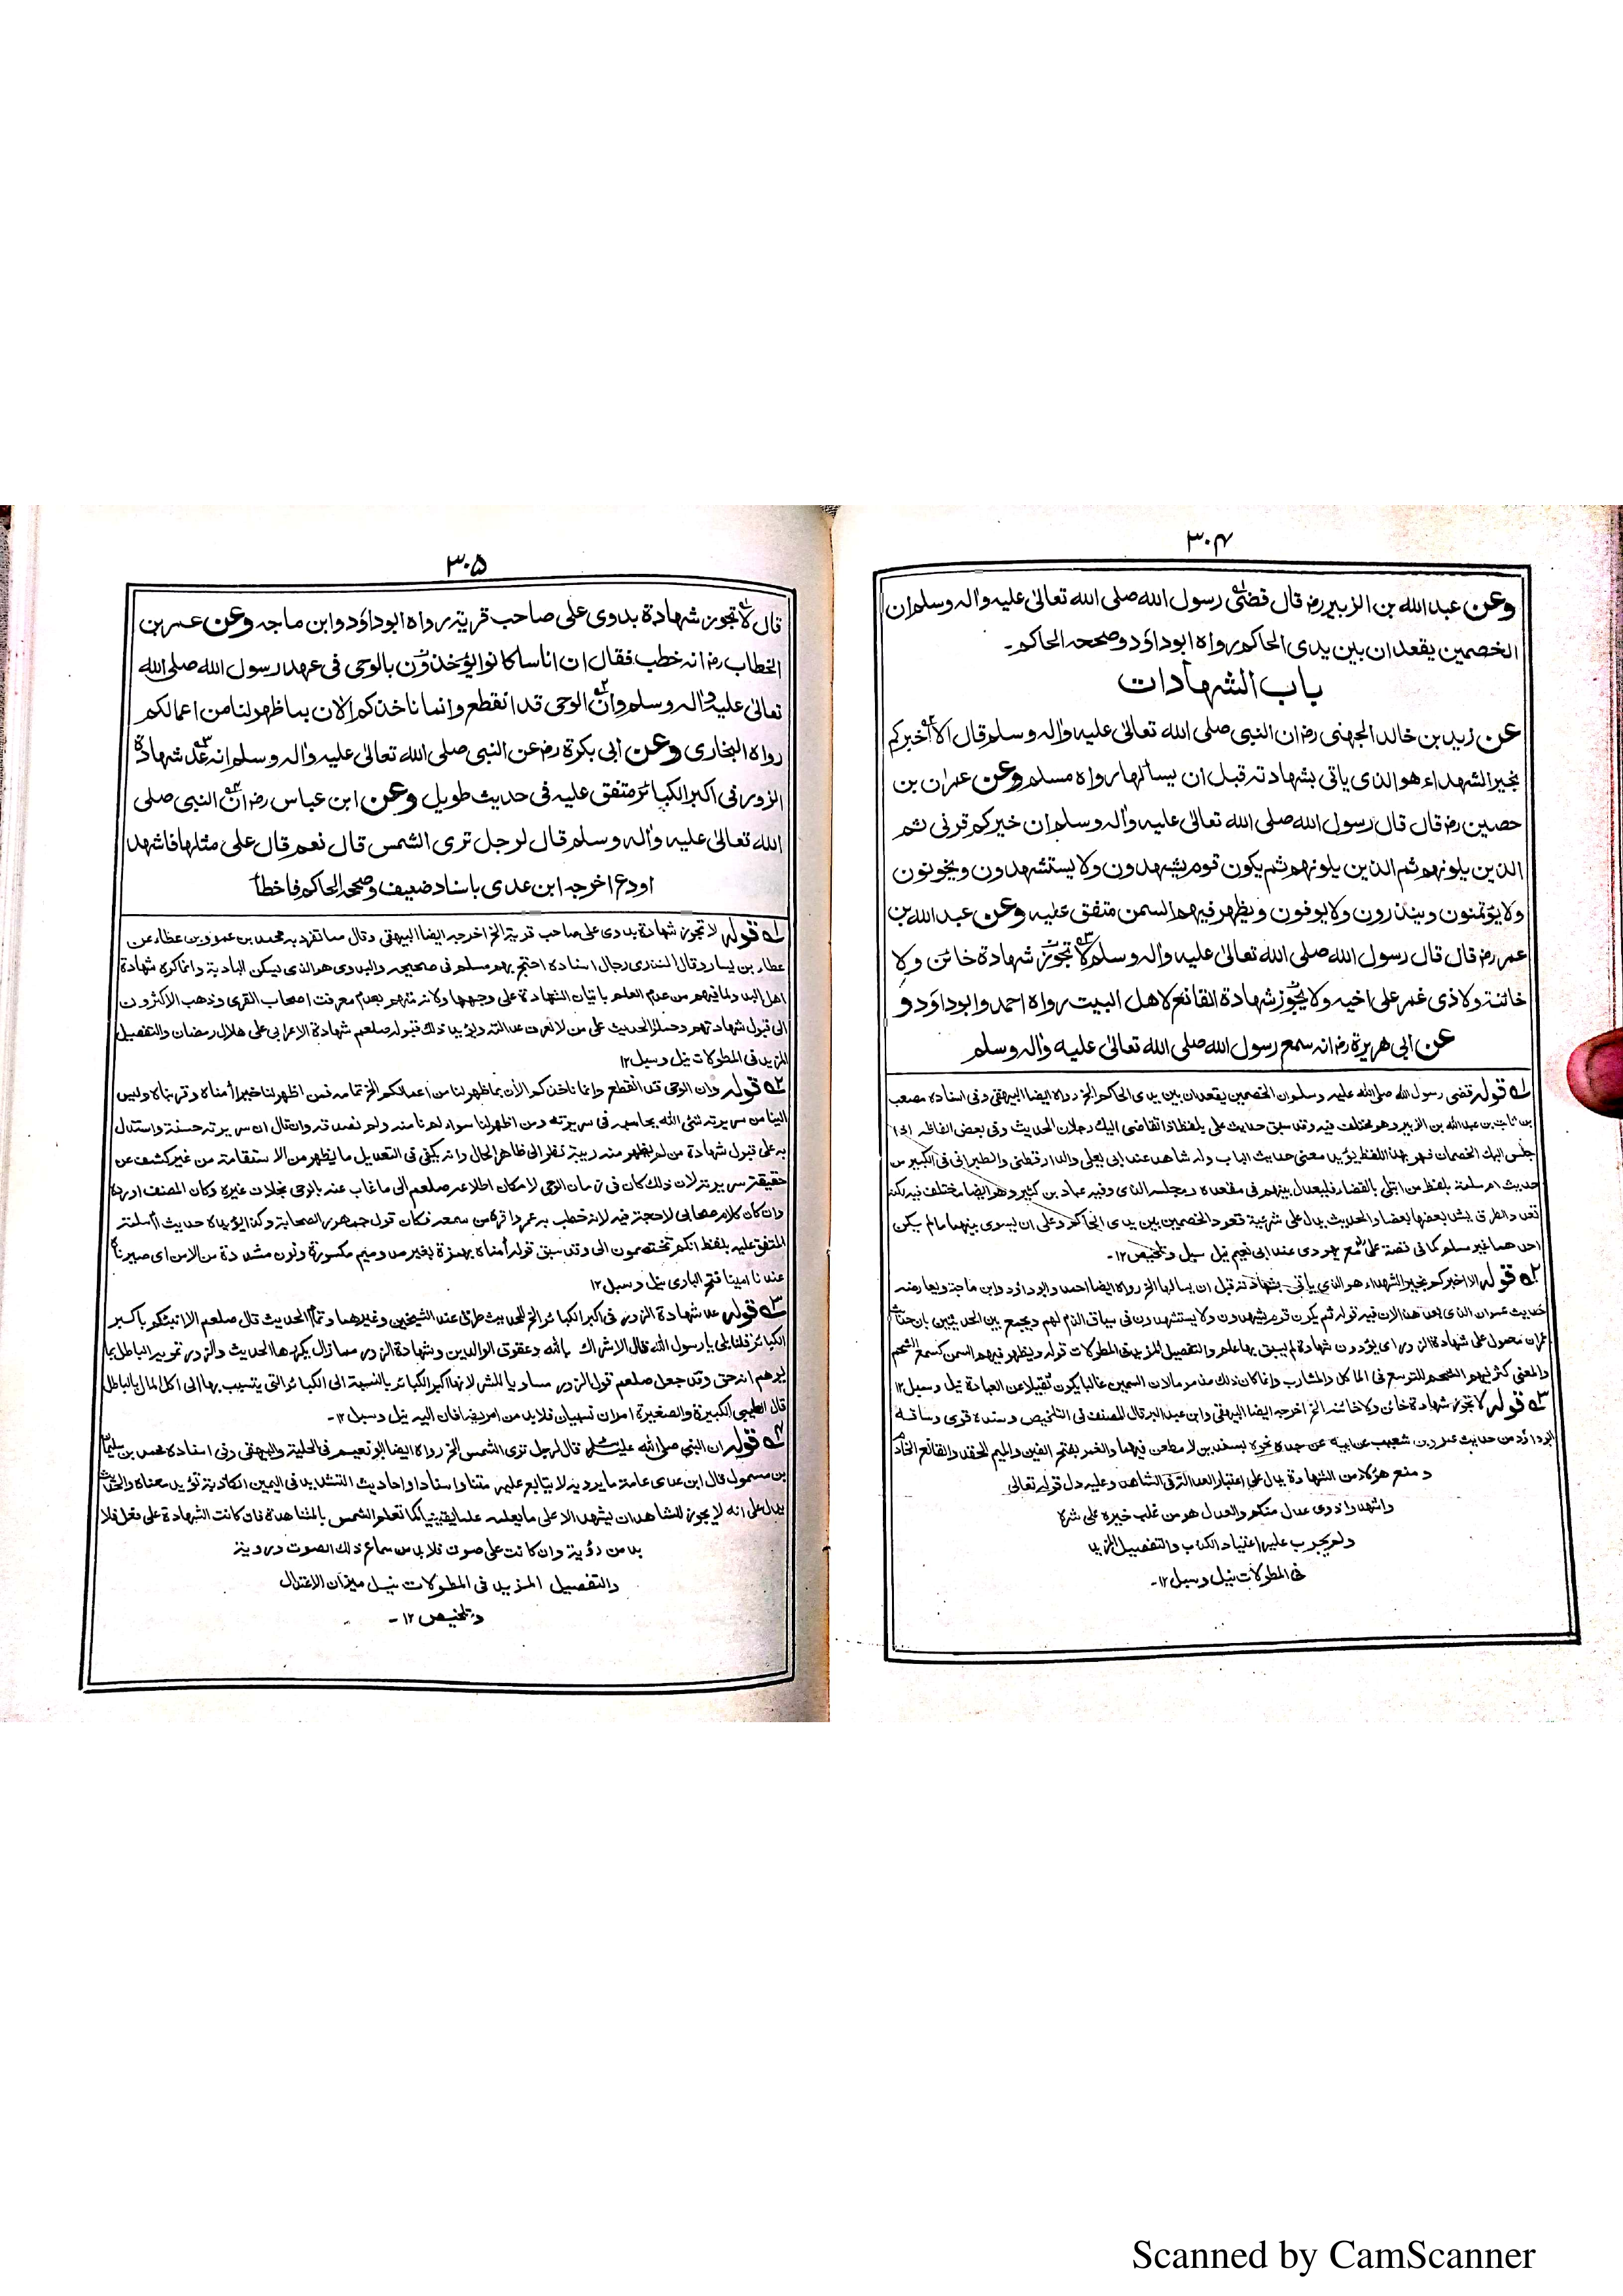 ٣٠٤
وعن عبد الله بن الزبير رض قال قضى رسول الله صلى الله تعالىٰ عليه واٰله وسلم ان
الخصمين يقعدان بين يدى الحاكم رواه ابوداؤد وصححه الحاكم۔
باب الشهادات
عن زيد بن خالد الجهنى رض ان النبى صلى الله تعالىٰ عليه واٰله وسلم قال الا أخبركم
بخير الشهداء هو الذى ياتى بشهادته قبل ان يسألها رواه مسلم وعن عمران بن
حصين رض قال قال رسول الله صلى الله تعالىٰ عليه واٰله وسلم ان خيركم قرنى ثم
الذين يلونهم ثم الذين يلونهم ثم يكون قوم يشهدون ولا يستشهدون ويخونون
ولا يؤتمنون وينذرون ولا يوفون ويظهر فيهم السمن متفق عليه وعن عبد الله بن
عمر رض قال قال رسول الله صلى الله تعالىٰ عليه واٰله وسلم لا تجوز شهادة خائن ولا
خائنة ولا ذى غمر على اخيه ولا يجوز شهادة القانع لاهل البيت رواه احمد وابوداؤد و
عن ابى هريرة رض انه سمع رسول الله صلى الله تعالىٰ عليه واٰله وسلم
١ قوله قضى رسول الله صلى الله عليه وسلم ان الخصمين يقعدان بين يدى الحاكم الخ رواه ايضا البيهقى وفى اسناده مصعب
بن ثابت بن عبد الله بن الزبير وهو مختلف فيه وقد سبق حديث على بلفظ اذا تقاضى اليك رجلان الحديث وفى بعض الفاظه اذا
جلس اليك الخصمان فهو بهذا اللفظ يؤيد معنى حديث الباب وله شاهد عند ابى يعلى والدارقطنى والطبرانى فى الكبير من
حديث ام سلمة بلفظ من ابتلى بالقضاء فليعدل بينهم فى مقعده ومجلسه الذى وفيه عباد بن كثير وهو ايضا مختلف فيه لكنه
تعدد الطرق يشد بعضها بعضا والحديث يدل على شرعية قعود الخصمين بين يدى الحاكم وعلى ان يسوى بينهما مالم يكن
احدهما غير مسلم كما فى قصة على مع يهودى عند ابى نعيم نيل سبل وتلخيص ١٢۔
٢ قوله الا اخبركم بخير الشهداء هو الذى ياتى بشهادته قبل ان يسالها الخ رواه ايضا احمد وابوداود وابن ماجة ويعارضه
حديث عمران الذى بعد هذا لان فيه قوله ثم يكون قوم يشهدون ولا يستشهدون فى سياق الذم لهم ويجمع بين الحديثين بان حديث
عمران محمول على شهادة الزور اى يؤدون شهادة لم يسبق بها علم والتفصيل المزيد فى المطولات قوله ويظهر فيهم السمن
والمعنى كثر فيهم الشحم للتوسع فى الماكل والمشارب وانما كان ذلك مذموما لان السمين غالبا يكون ثقيلا عن العبادة نيل وسبل ١٢
٣ قوله لا تجوز شهادة خائن ولا خائنة الخ اخرجه ايضا البيهقى وابن عبد البر قال المصنف فى التلخيص وسنده قوى وساقه
ابوداؤد من حديث عمرو بن شعيب عن ابيه عن جده نحوه بسند بن لا مطعن فيهما والغمر بفتح الغين والميم الحقد والقانع الخادم
ومنع هؤلاء من الشهادة يدل على اعتبار العدالة فى الشاهد وعليه دل قوله تعالى
واشهدوا ذوى عدل منكم والعدل هو من غلب خيره على شره
ولم يجرب عليه اعتياد الكذب والتفصيل المزيد
فى المطولات نيل وسبل ١٢۔
٣٠٥
قال لا تجوز شهادة بدوى على صاحب قرية رواه ابوداؤد وابن ماجه وعن عمر بن
الخطاب رض انه خطب فقال ان اناسا كانوا يؤخذون بالوحى فى عهد رسول الله صلى الله
تعالىٰ عليه واٰله وسلم وان الوحى قد انقطع وانما ناخذكم الاٰن بما ظهر لنا من اعمالكم
رواه البخارى وعن ابى بكرة رض عن النبى صلى الله تعالىٰ عليه واٰله وسلم انه عد شهادة
الزور فى اكبر الكبائر متفق عليه فى حديث طويل وعن ابن عباس رض ان النبى صلى
الله تعالىٰ عليه واٰله وسلم قال لرجل ترى الشمس قال نعم قال على مثلها فاشهد
اودع اخرجه ابن عدى باسناد ضعيف وصححه الحاكم فاخطأ
١ قوله لا تجوز شهادة بدوى على صاحب قرية الخ اخرجه ايضا البيهقى وقال مما تفرد به محمد بن عمرو بن عطاء عن
عطاء بن يسار وقال المنذرى رجال اسناده احتج بهم مسلم فى صحيحه والبدوى هو الذى يسكن البادية وانما كره شهادة
اهل البدو لما فيهم من عدم العلم باتيان الشهادة على وجهها ولانه متهم بعدم معرفت اصحاب القرى وذهب الاكثرون
الى قبول شهادتهم وحملوا الحديث على من لا تعرف عدالته ويؤيد ذلك قبوله صلعم شهادة الاعرابى على هلال رمضان والتفصيل
المزيد فى المطولات نيل وسبل ١٢
٢ قوله وان الوحى قد انقطع وانما ناخذكم الاٰن بما ظهر لنا من اعمالكم الخ تمامه فمن اظهر لنا خيرا أمناه وقربناه وليس
الينا من سريرته شئ الله يحاسبه فى سريرته ومن اظهر لنا سوءا لم نامنه ولم نصدقه وان قال ان سريرته حسنة واستدل
به على قبول شهادة من لم يظهر منه ريبة نظرا الى ظاهر الحال وانه يكفى فى التعديل ما يظهر من الاستقامة من غير كشف عن
حقيقة سريرته لان ذلك كان فى زمان الوحى لامكان اطلاعه صلعم الى ما غاب عنه بالوحى بخلاف غيره وكان المصنف اورده
وان كان كلام صحابى لا حجة فيه لانه خطب به عمر واقره من سمعه فكان قول جمهور الصحابة وكذا يؤيده حديث ام سلمة
المتفق عليه بلفظ انكم تختصمون الى وقد سبق قوله أمناه بهمزة بغير مد وميم مكسورة ونون مشددة من الامن اى صيرناه
عندنا امينا فتح البارى نيل وسبل ١٢
٣ قوله عد شهادة الزور فى اكبر الكبائر الخ للحديث طرق عند الشيخين وغيرهما وتمام الحديث قال صلعم الا انبئكم باكبر
الكبائر قلنا بلى يا رسول الله قال الاشراك بالله وعقوق الوالدين وشهادة الزور ممازال يكررها الحديث والزور تمويه الباطل بما
يوهم انه حق وقد جعل صلعم قول الزور مساويا للشرك لانها اكبر الكبائر بالنسبة الى الكبائر التى يتسبب بها الى اكل المال بالباطل
قال الطيبى الكبيرة والصغيرة امران نسبيان فلابد من امر يضافان اليه نيل وسبل ١٢۔
٤ قوله ان النبى صلى الله عليه وسلم قال لرجل ترى الشمس الخ رواه ايضا ابونعيم فى الحلية والبيهقى وفى اسناده محمد بن سليمان
بن مسمول قال ابن عدى عامة ما يرويه لا يتابع عليه متنا واسنادا واحاديث التشديد فى اليمين الكاذبة تؤيد معناه والحديث
يدل على انه لا يجوز للشاهد ان يشهد الا على ما يعلمه علما يقينيا كما تعلم الشمس بالمشاهدة فان كانت الشهادة على فعل فلا
بد من رؤية وان كانت على صوت فلابد من سماع ذلك الصوت ورؤية
والتفصيل المزيد فى المطولات نيل ميزان الاعتدال
وتلخيص ١٢۔
Scanned by CamScanner